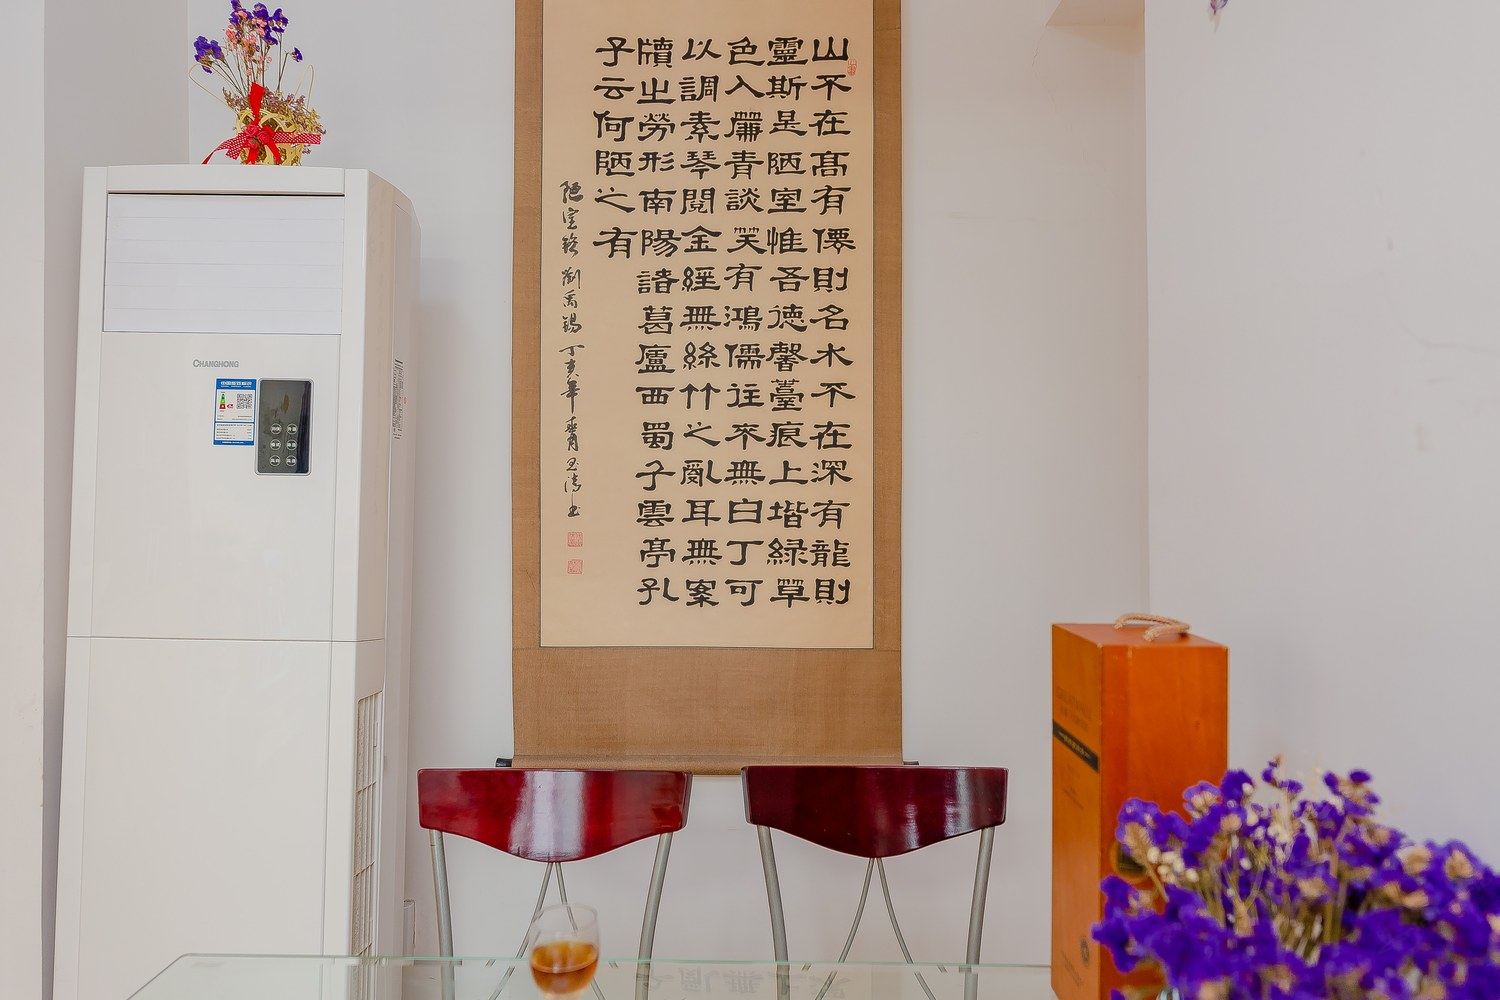 山不在髙有僊則名水不在深有龍則
靈斯是陋室惟吾徳馨薹痕上堦緑草
色入簾青談笑有鴻儒往來無白丁可
以調素琴閲金經無絲竹之亂耳無案
牘之勞形南陽諸葛廬西蜀子雲亭孔
子云何陋之有
陋室銘劉禹錫丁亥年
CHANGHONG
中国能效标识